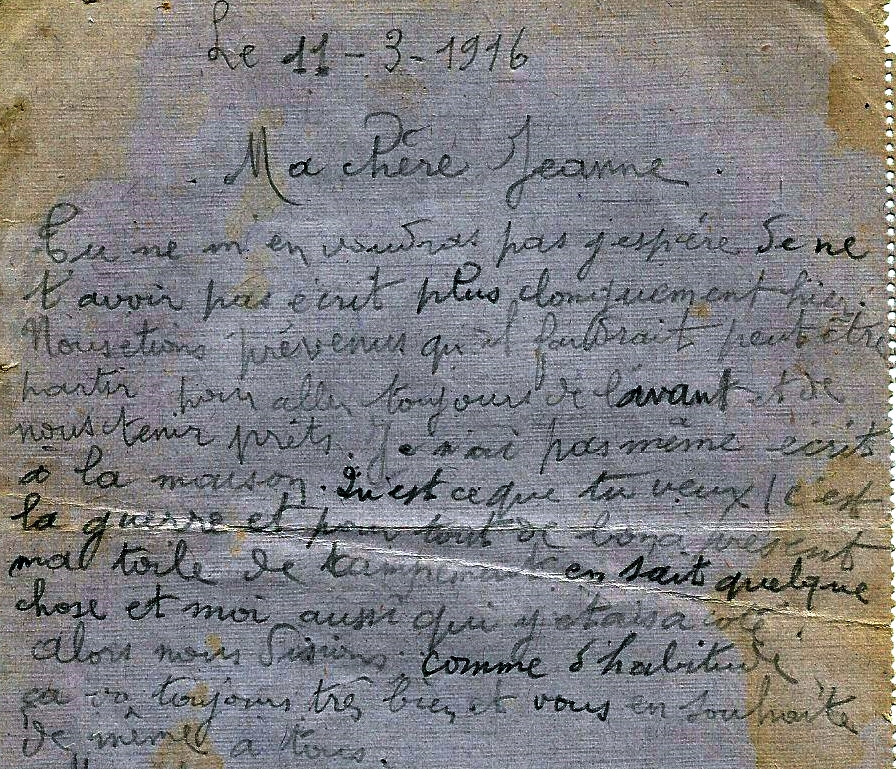 Le 11-3-1916
Ma chère Jeanne.
Tu ne m'en voudras pas j'espère de ne
t'avoir pas écrit plus longuement hier.
Nous etions prévenus qu'il faudrait peut être
partir pour aller toujours de l'avant et de
nous tenir prêts. Je n'ai pas même écrit
à la maison. Qu'est ce que tu veux, c'est
la guerre et pour tout de bon à présent
ma toile de campement en sait quelque
chose et moi aussi qui y étais à côté.
Alors nous disions comme d'habitude,
ça va toujours très bien, et vous en souhaite
de même à tous.